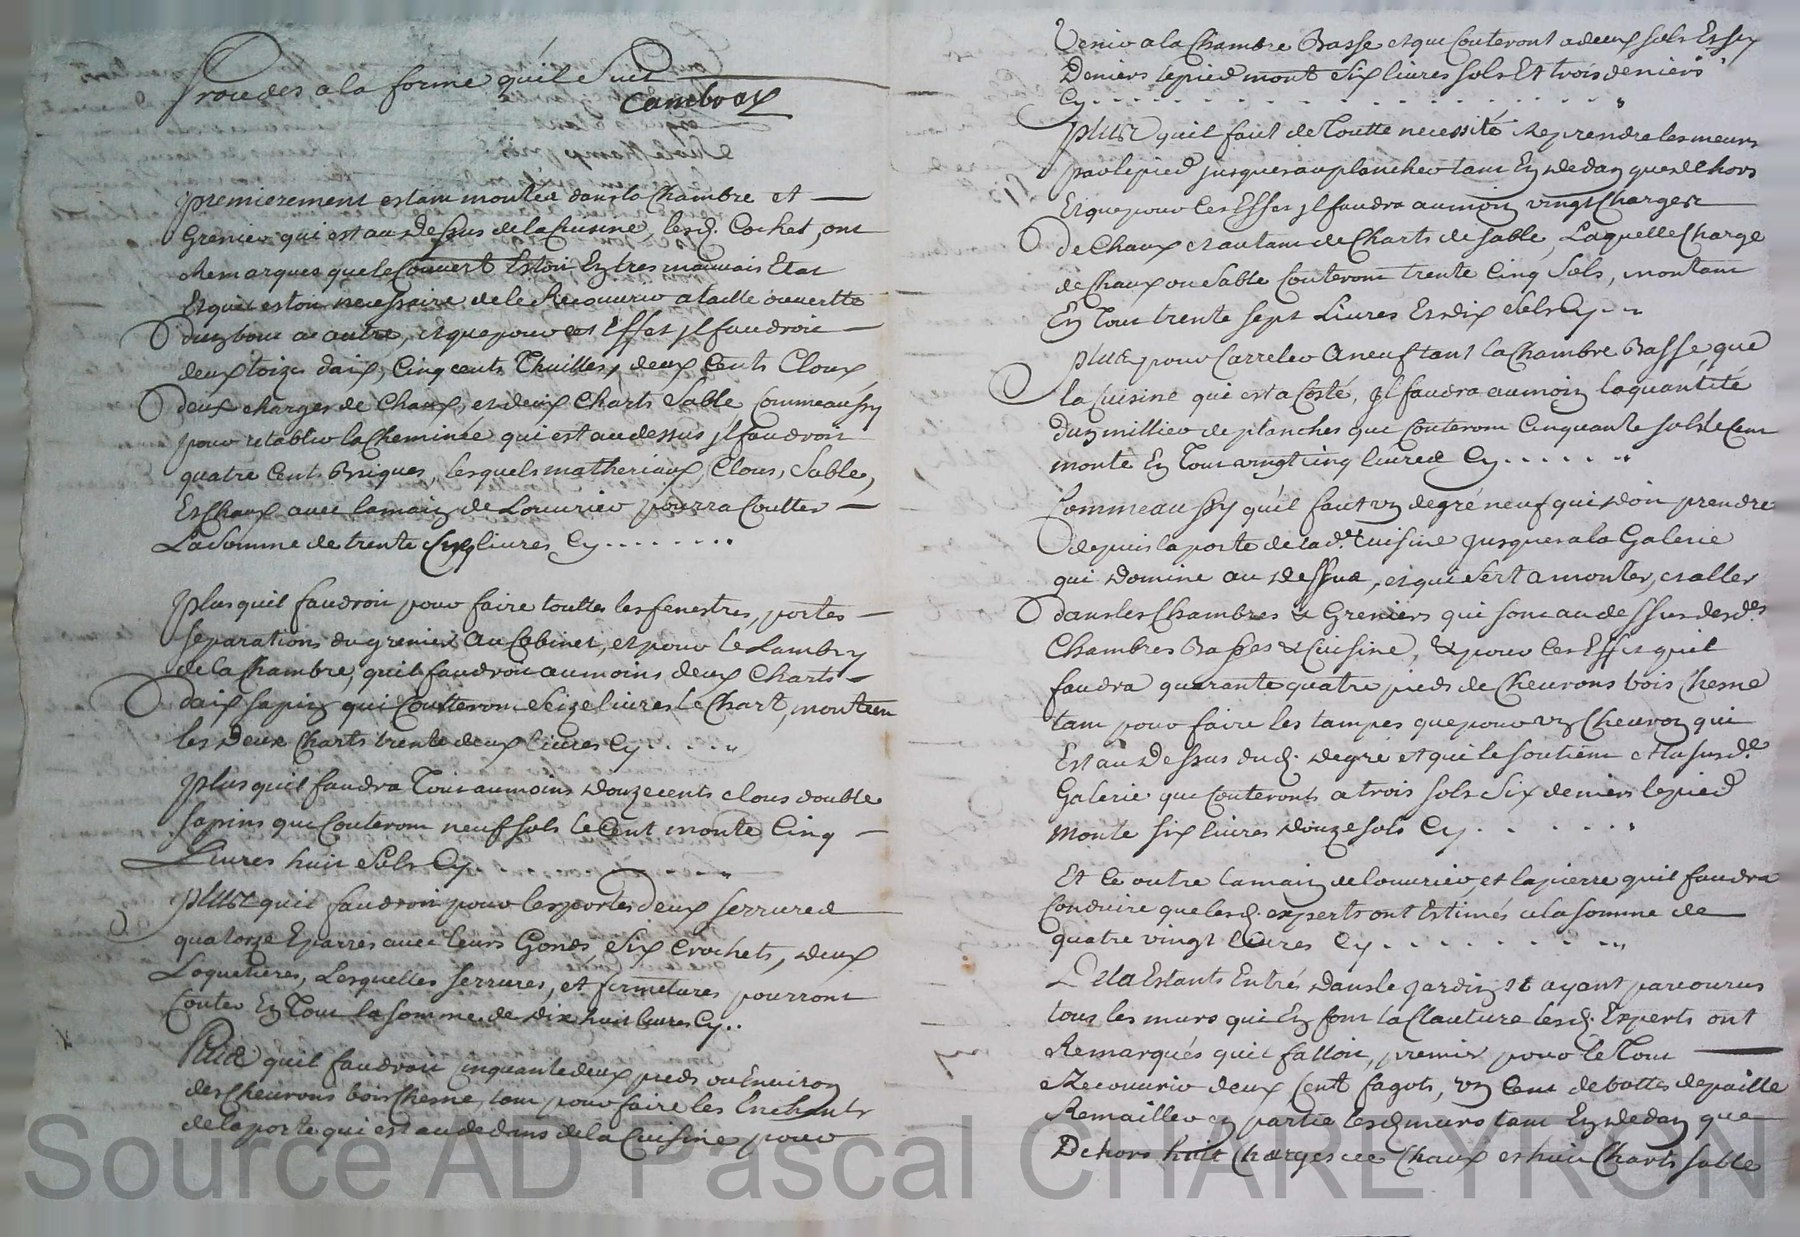 Proceder a la forme quil suit
Cambray
premierement estant montées dans la Chambre et
Grenier qui est au dessus de la Cuisine, lesd. Cochet, ont
Remarqués que le Couvert Estoit En tres mauvais Etat
Et quil estoit necessaire de le Recouvrir a taille ouvertte
dun bout a autre, et que pour cet Effet jl faudroit
deux toizes daix, Cinq cents Thuilles, deux Cents Cloux,
deux charges de Chaux, et deux Charts Sable Comme aussy
pour retablir la Cheminée qui est au dessus jl faudroit
quatre Cent Briques, lesquels matheriaux, Clous, Sable,
Et Chaux avec la main de Louvrier pourra Coutter
La Somme de trente livres Cy........
Plus quil faudroit pour faire touttes les fenestres, portes
separations du grenier au Cabinet, et pour le Lambry
de la Chambre, quil faudroit au moins deux Charts
daix sapin qui Coutteront Seize livres le Chart, montent
les deux Charts trente deux livres Cy.....
Plus quil faudra Tout au moins douze cents clous double
sapins qui Couteront neuf sols le Cent monte Cinq
Livres huit Sols Cy.......
Plus quil faudroit pour les portes deux serrures
quatorze Eparres avec leurs Gonds, Six Crochets, deux
Loquetieres, Lesquelles serrures, et fermetures pourront
Couter En Tout la somme de dix huit livres Cy..
Plus quil faudroit Cinquante deux pieds ou Environ
des Cheurons bois Chesne, tant pour faire les Enchants
de la porte qui est au dedans de la Cuisine pour
Venir a la Chambre Basse et qui Couteront a deux sols Et six
Deniers le pied mont Six livres sols Et trois deniers
Cy..................
Plus quil faut de Toutte necessité Reprendre les meurs
par le pied jusques au plancher tant En dedan que dehors
Et que pour cet Effet jl faudra au moin vingt Charges
de Chaux et autant de Charts de sable, Laquelle Charge
de Chaux ou Sable Couteront trente Cinq Sols, montant
En Tout trente sept Livres Et dix Sols Cy..
Plus pour Carreler a neuf tant la Chambre Basse que
la Cuisine qui est a Costé, jl faudra au moin la quantité
dun millier de planches qui Couteront Cinquante sols le Cent
monte En Tout vingt cinq livres Cy......
Comme aussy quil faut un degré neuf qui doit prendre
depuis la porte de lad.e Cuisine jusques a la Galerie
qui domine au dessus, et qui sert a monter, et aller
dans les Chambres & Greniers qui sont au dessus desd.es
Chambres Basses & Cuisine, & pour cet Effet quil
faudra quarante quatre pieds de Cheurons bois Chesne
tant pour faire les tampes que pour un Cheuron qui
Est au Dessus dud. degré et qui le soutient et la susd.e
Galerie qui Couteronts a trois sols Six deniers le pied
monte six livres douze sols Cy.......
Et ce outre la main de louvrier, et la pierre quil faudra
Conduire que lesd. experts ont Estimés a la somme de
quatre vingt livres Cy..........
De la Estants Entré dans le jardin et ayant parcourus
tous les murs qui En font la Clauture lesd. Experts ont
Remarqués quil falloit, premier pour le Tout
Recouvrir deux Cent fagots, un Cent de bottes de paille
Remailler en partie lesd. murs tant En dedan que
Dehors huit Charges de Chaux et huit Charts sable
Source AD Pascal CHAREYRON